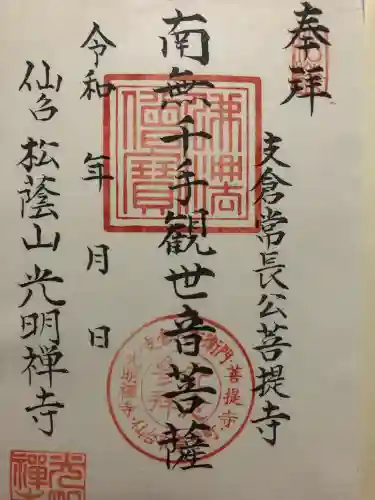 奉拝
支倉常長公菩提寺
南無千手観世音菩薩
令和 年 月 日
仙台 松蔭山 光明禅寺
佛法僧寶